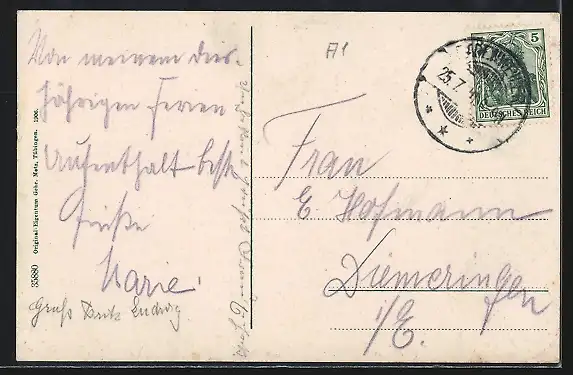 Von meinem dies-
jährigen Ferien
Aufenthalt beste
Grüße
Marie.
Gruß Fritz Ludwig
35880 Original-Eigentum Gebr. Metz, Tübingen. 1906.
A1
5
DEUTSCHES REICH
25.7.
Frau
E. Hofmann
Diemeringen
i/E.